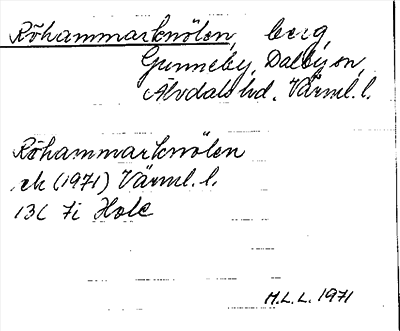 Röhammarknölen, berg,
Gunneby, Dalby sn,
Älvdals hd. Värml. l.
Röhammarknölen
ek (1971) Värml. l.
13C 7i Hole
H.L.L. 1971